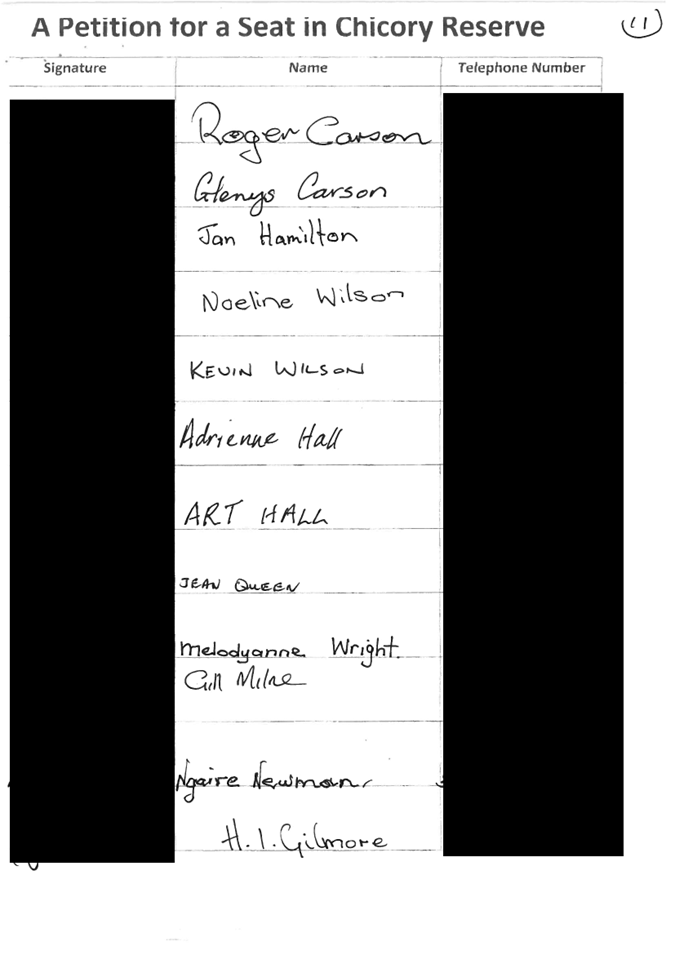 A Petition for a Seat in Chicory Reserve
11
Signature Name Telephone Number
Roger Carson
Glenys Carson
Jan Hamilton
Noeline Wilson
KEVIN WILSON
Adrienne Hall
ART HALL
JEAN QUEEN
Melodyanne Wright.
Gill Milne
Ngaire Newman
H. I. Gilmore